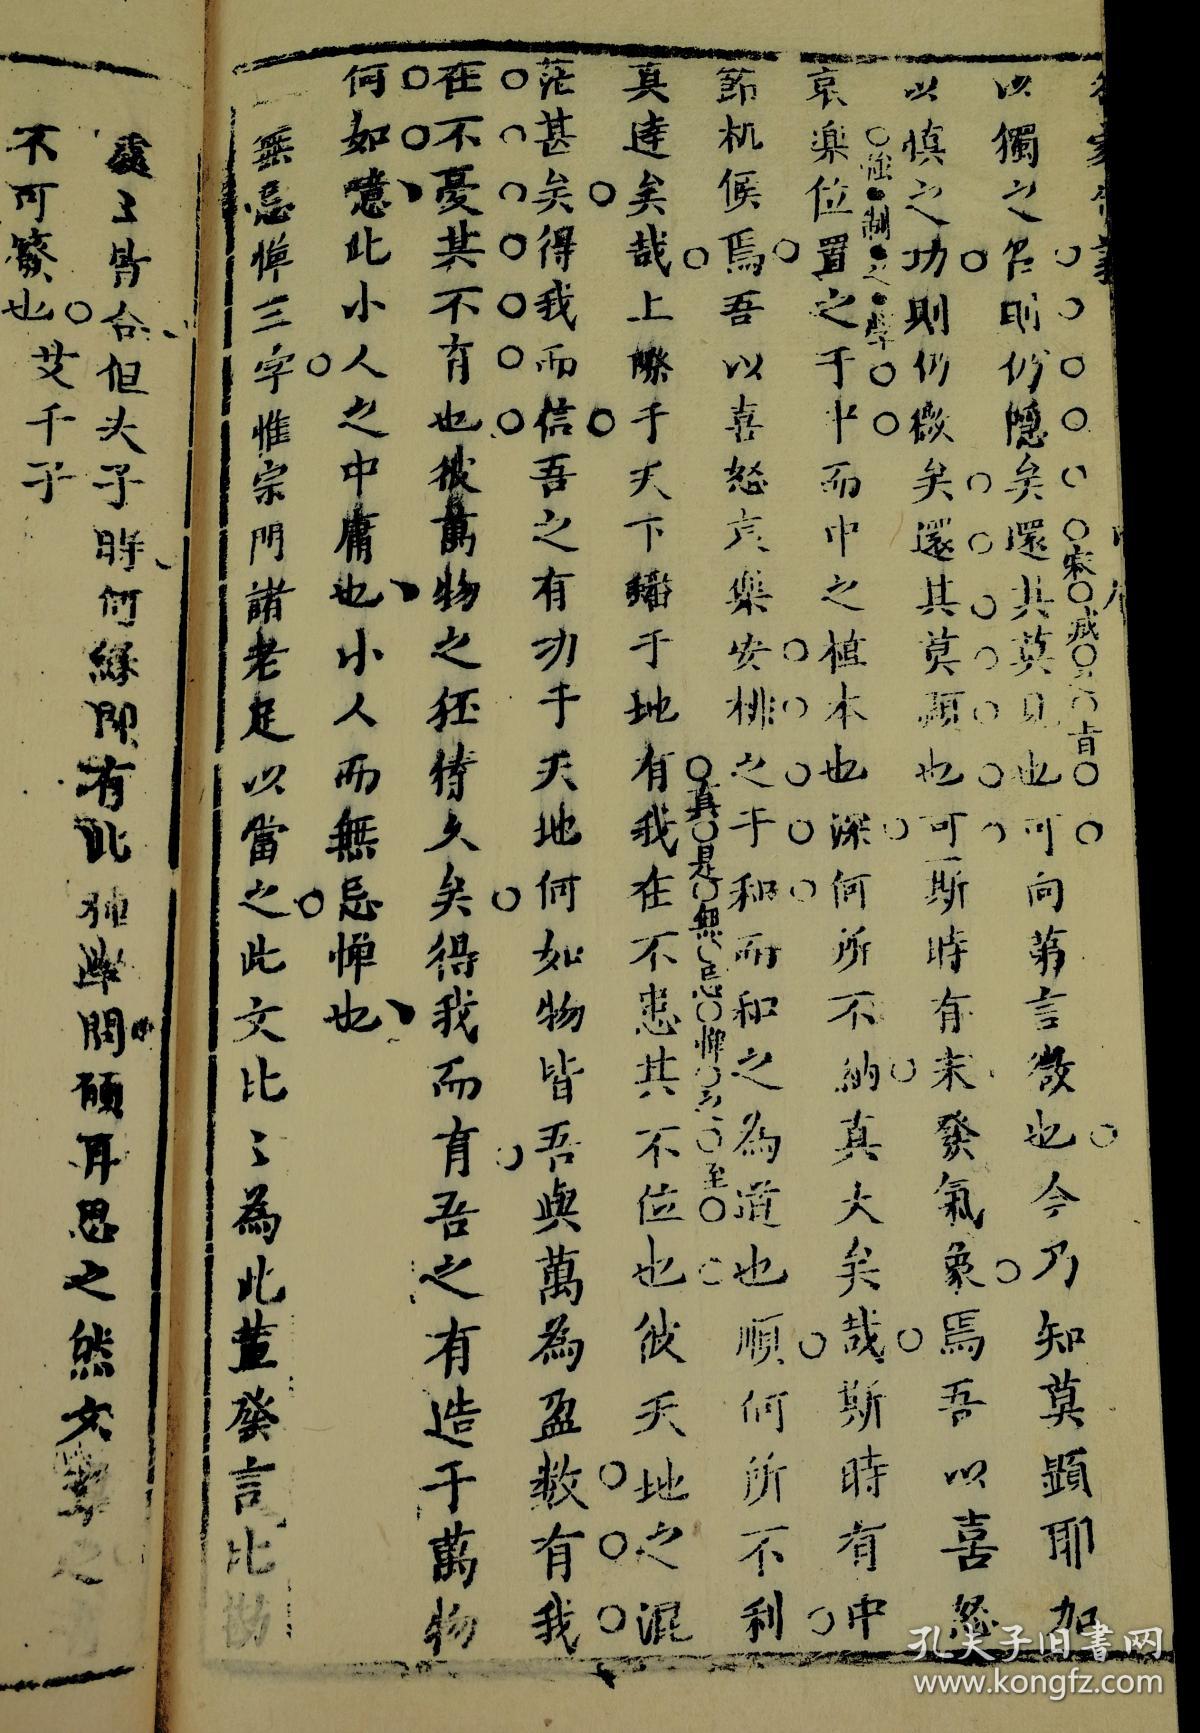 以獨之名則仍隱矣還其莫見也可向第言微也今乃知莫顯耶加
以慎之功則仍微矣還其莫顯也可斯時有未發氣象焉吾以喜怒
哀樂位置之于中而中之植本也深何所不納真大矣哉斯時有中
強制之學
節机候焉吾以喜怒哀樂安排之于和而和之為道也順何所不利
真是無忌憚之至
真達矣哉上際于天下蟠于地有我在不患其不位也彼天地之混
茫甚矣得我而信吾之有功于天地何如物皆吾與萬為盈数有我
在不憂其不育也彼萬物之狂待久矣得我而育吾之有造于萬物
何如噫此小人之中庸也小人而無忌憚也
無忌憚三字惟宗門諸老足以當之此文比〻為此輩發言比
處〻皆合但夫子時何緣即有此種學問願再思之然文
不可廢也 艾千子
孔夫子旧書网
www.kongfz.com